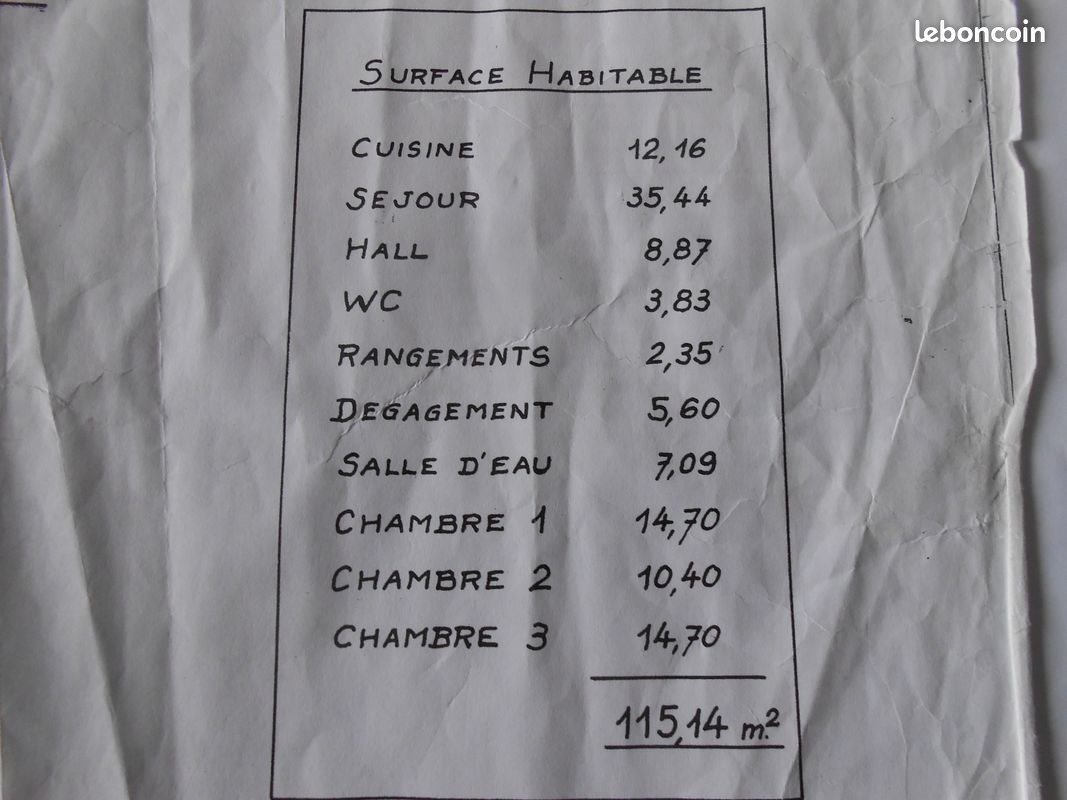 leboncoin
SURFACE HABITABLE
CUISINE 12,16
SEJOUR 35,44
HALL 8,87
WC 3,83
RANGEMENTS 2,35
DEGAGEMENT 5,60
SALLE D'EAU 7,09
CHAMBRE 1 14,70
CHAMBRE 2 10,40
CHAMBRE 3 14,70
115,14 m²